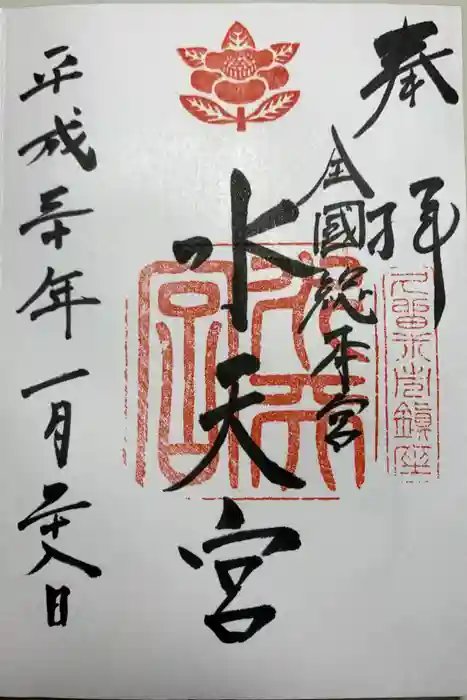 奉拝
全國総本宮
水天宮
平成三十年一月二十八日
九留米市鎮座
水天宮